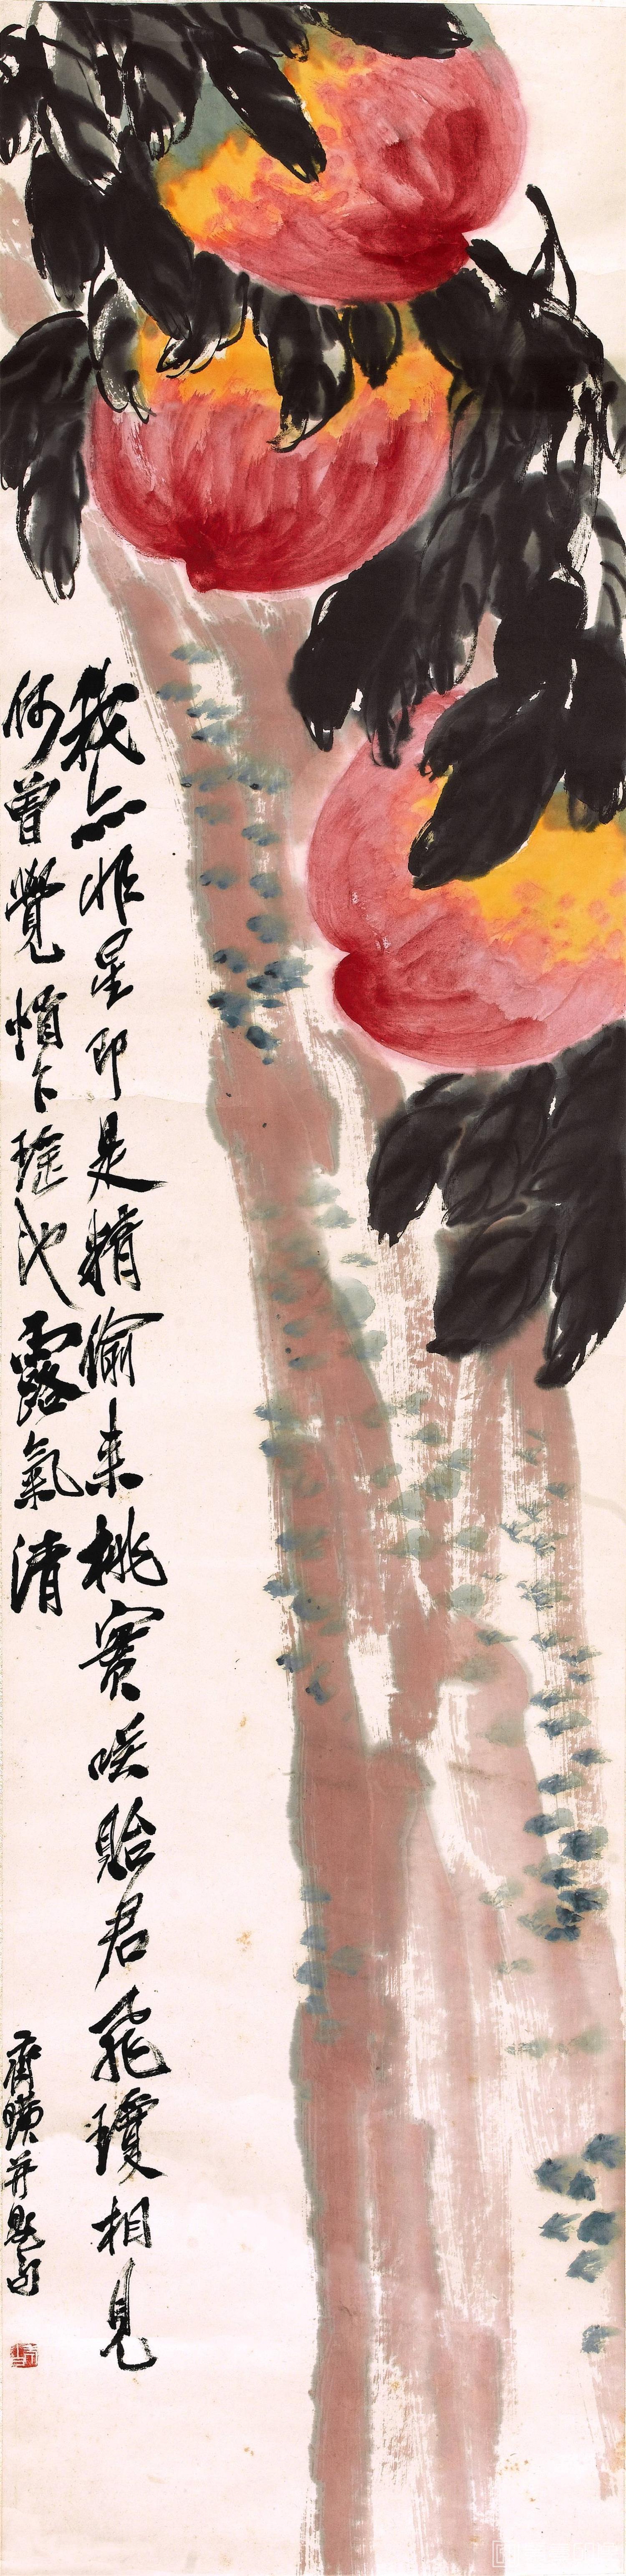 我亦非星即是精偷来桃实笑贻君飛瓊相見
何曾覺悄下瑶池露氣清
齊璜并題句